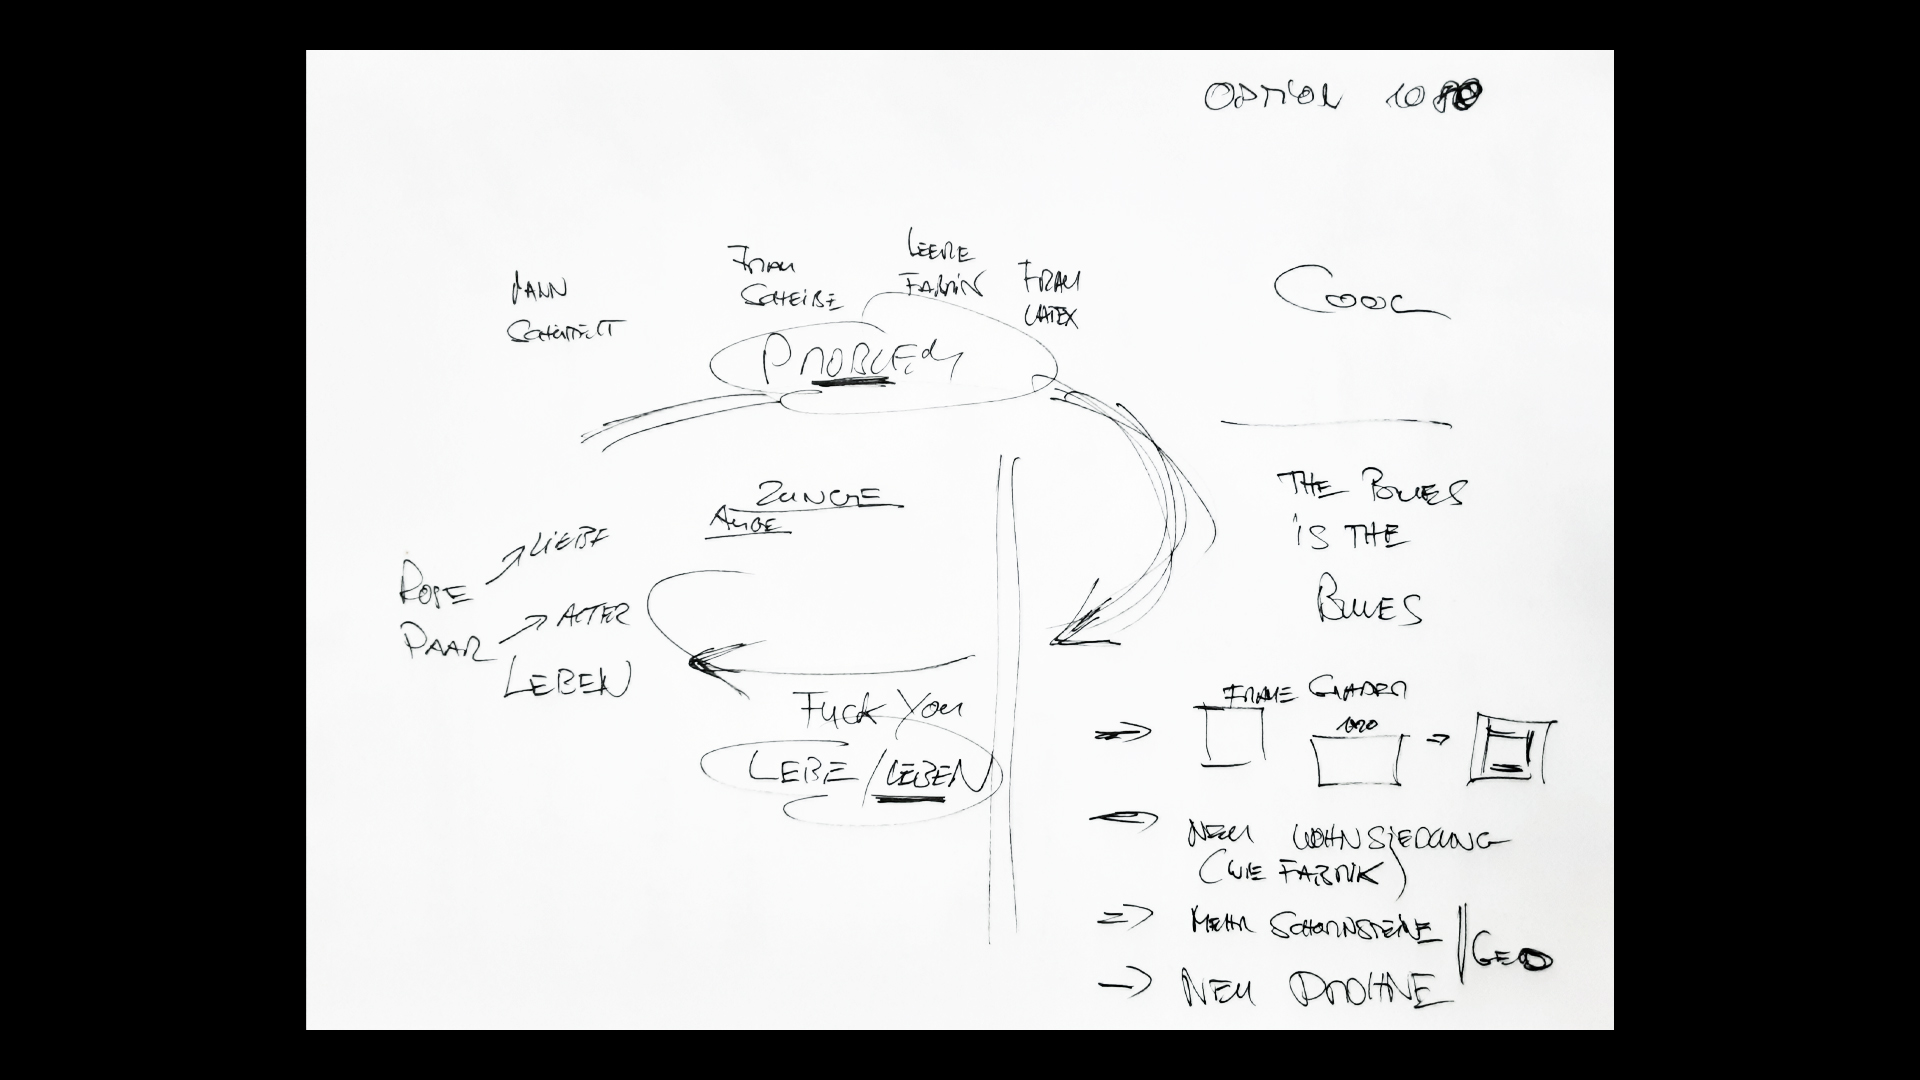 OPTION 10
MANN
FRAU
SCHEIBE
LEERE
FABRIK
FRAU
LATEX
PROBLEM
COOL
ZUNGE
AUGE
LIEBE
ROSE
ALTER
PAAR
LEBEN
FUCK YOU
LEBE / LEBEN
THE BLUES
IS THE
BLUES
FRAME QUADRAT
NEU WOHNSIEDLUNG
(WIE FABRIK)
MEHR SCHORNSTEINE
GELD
NEU DROHNE